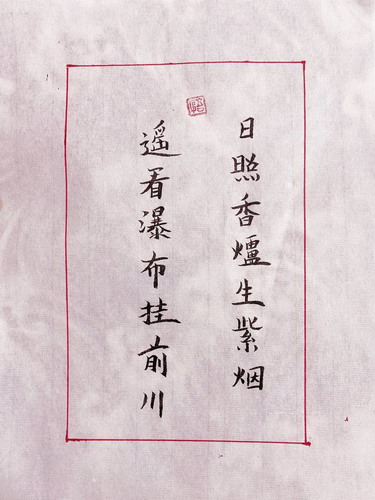 日照香爐生紫烟
遥看瀑布挂前川